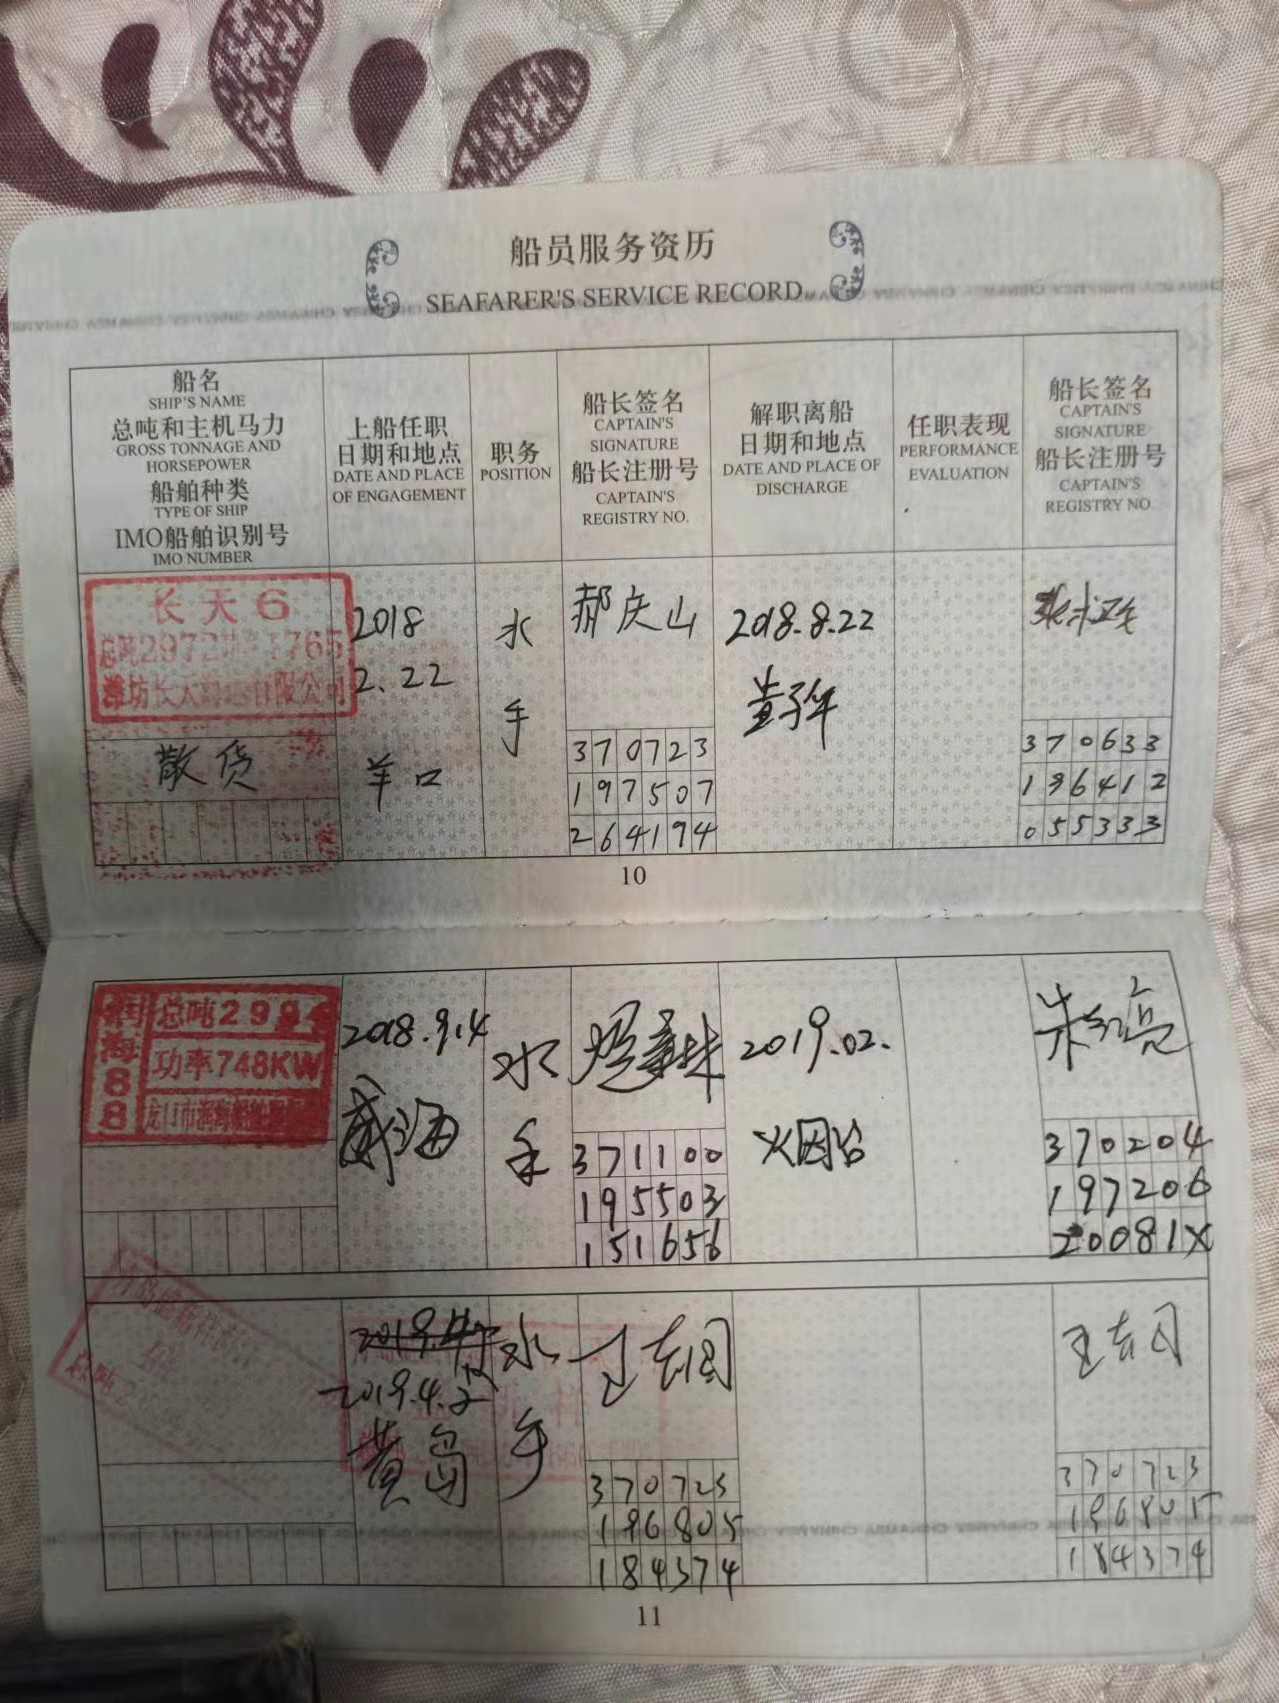 船员服务资历
SEAFARER'S SERVICE RECORD
船名
SHIP'S NAME
总吨和主机马力
GROSS TONNAGE AND
HORSEPOWER
船舶种类
TYPE OF SHIP
IMO船舶识别号
IMO NUMBER
上船任职
日期和地点
DATE AND PLACE
OF ENGAGEMENT
职务
POSITION
船长签名
CAPTAIN'S
SIGNATURE
船长注册号
CAPTAIN'S
REGISTRY NO.
解职离船
日期和地点
DATE AND PLACE OF
DISCHARGE
任职表现
PERFORMANCE
EVALUATION
船长签名
CAPTAIN'S
SIGNATURE
船长注册号
CAPTAIN'S
REGISTRY NO.
长天6
总吨2972
潍坊长天海运有限公司
散货
2018
2.22
羊口
水
手
郝庆山
370723
197507
264194
2018.8.22
370633
196412
055333
10
润海88
总吨299
功率748KW
龙口市润海船舶
2018.9.14
威海
水
手
371100
195503
151656
2019.02.
烟台
370204
197206
20081X
总吨
2019.4.2
黄岛
水
手
370723
196805
184374
370723
196805
184374
11